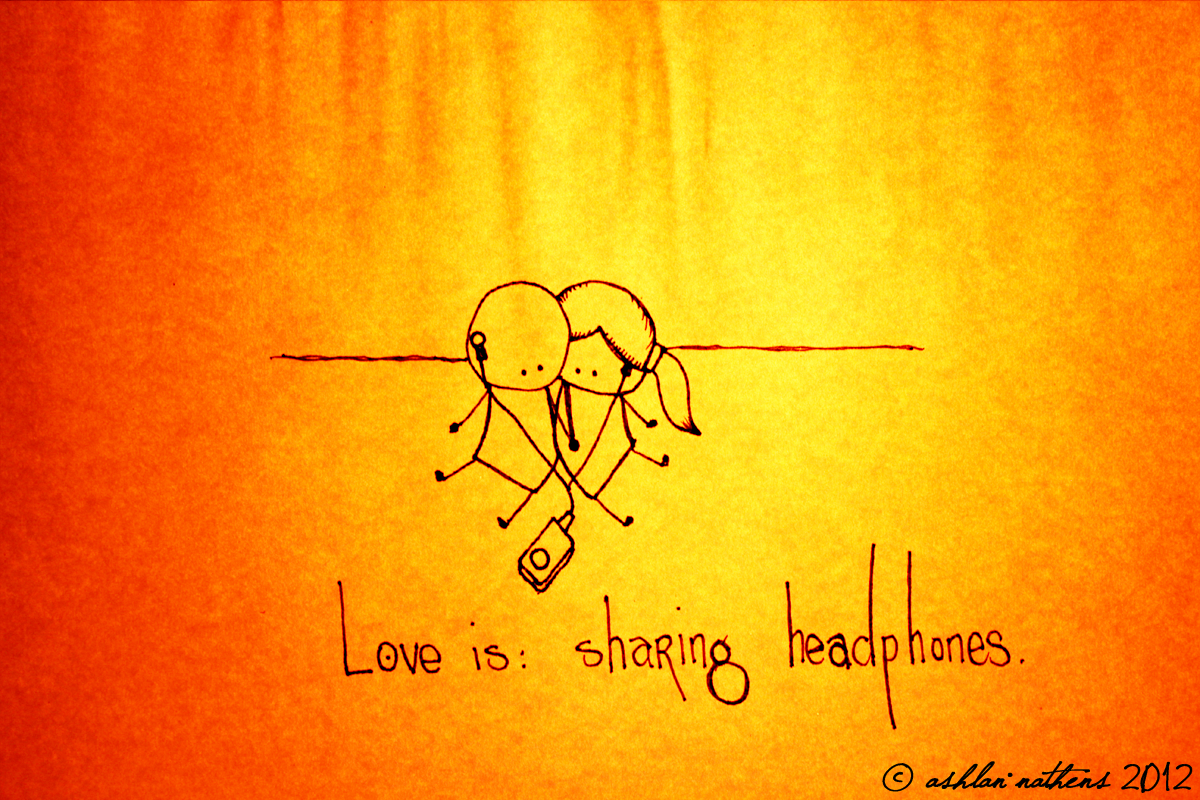 Love is: sharing headphones.
© ashlan nathens 2012